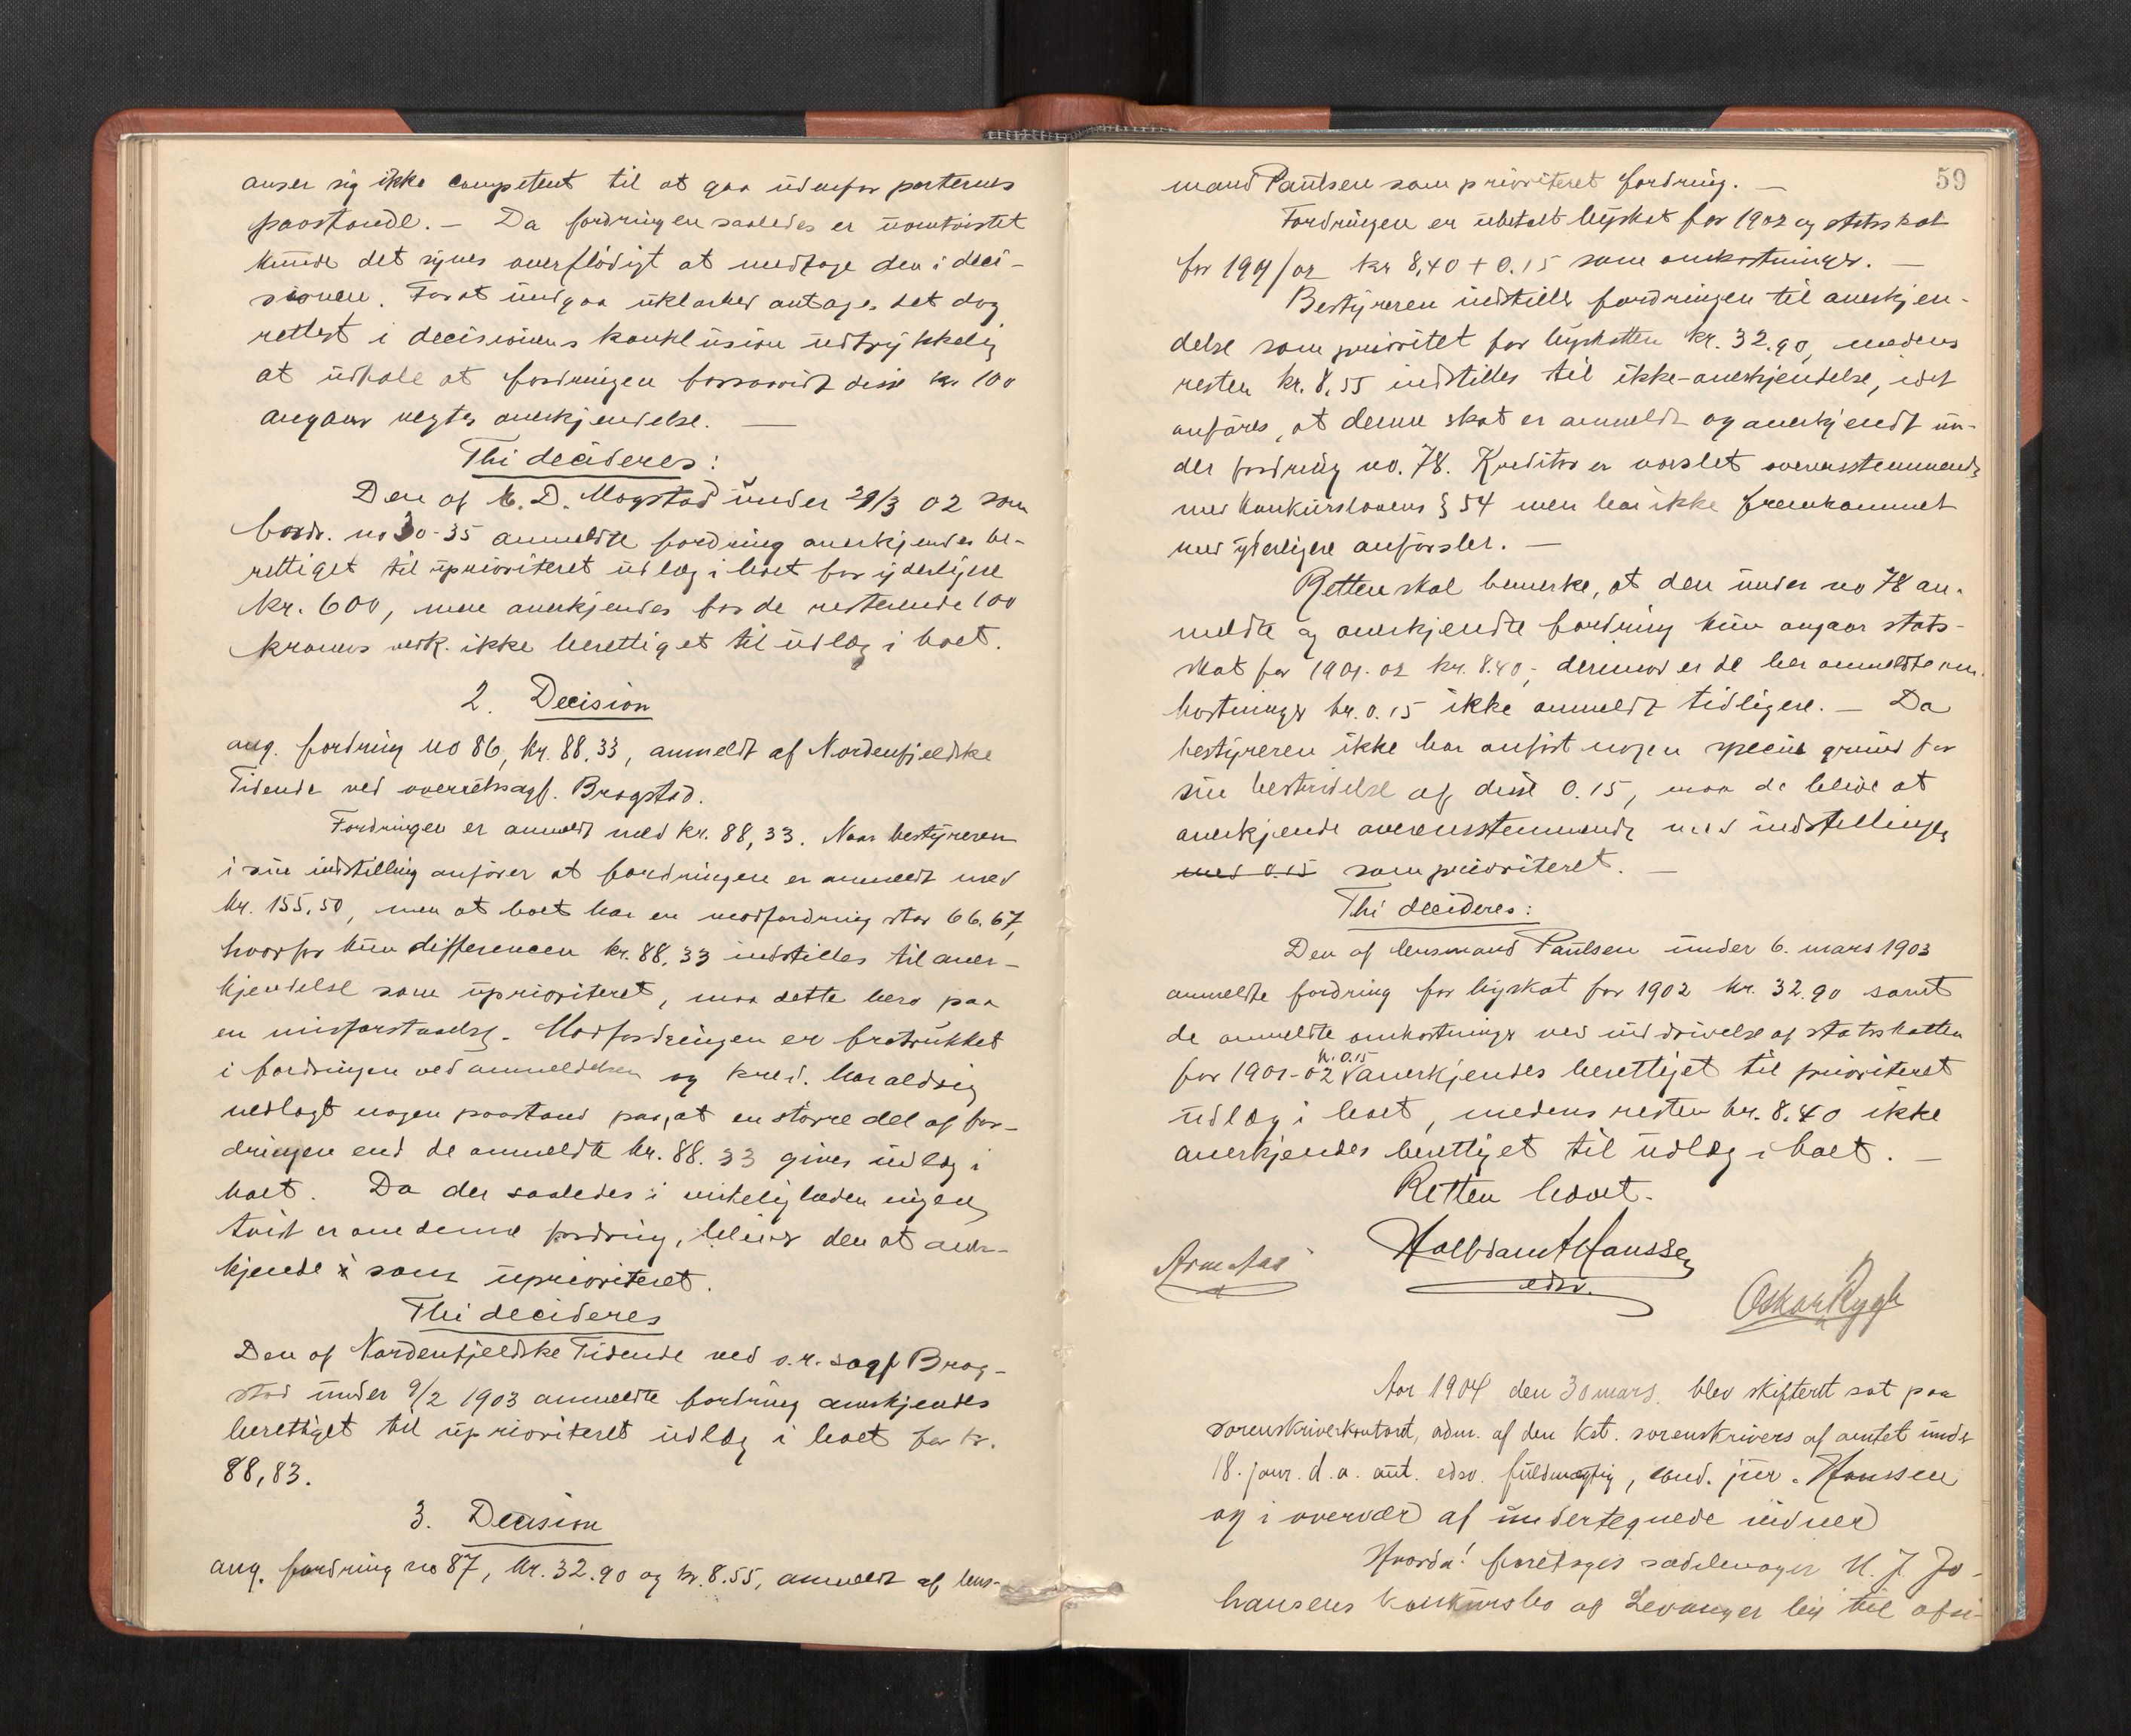 anser sig ikke competent til at gaa udenfor parternes
paastande. — Da fordringen saaledes er uomtvistet
kunde det synes overflødigt at medtage den i deci-
sionen. For at undgaa uklarhed antages det dog
rettest i decisionens konklusion udtrykkelig
at udtale at fordringen forsaavidt disse kr 100
angaar negtes anerkjendelse. —
Thi decideres:
Den af M. D. Mogstad under 29/3 02 som
fordr. no 30-35 anmeldte fordring anerkjendes be-
rettiget til uprioriteret udlæg i boet for yderligere
kr. 600, men anerkjendes for de resterende 100
kroners vedk. ikke berettiget til udlæg i boet.
2. Decision
ang. fordring no 86, kr. 88,33, anmeldt af Nordenfjeldske
Tidende ved overretssagf. Bragstad.
Fordringen er anmeldt med kr. 88,33. Naar bestyreren
i sin indstilling anfører at fordringen er anmeldt med
kr. 155,50, men at boet har en modfordring stor 66.67,
hvorfor kun differencen kr. 88.33 indstilles til aner-
kjendelse som uprioriteret, maa dette bero paa
en misforstaaelse. Modfordringen er fratrukket
i fordringen ved anmeldelsen og kred. har aldrig
nedlagt nogen paastand paa, at en større del af for-
dringen end de anmeldte kr. 88.33 gives udlæg i
boet. Da der saaledes i virkeligheden ingen
tvist er om denne fordring, bliver den at aner-
kjende som uprioriteret.
Thi decideres
Den af Nordenfjeldske Tidende ved o.r. sagf Brag-
stad under 9/2 1903 anmeldte fordring anerkjendes
berettiget til uprioriteret udlæg i boet for kr.
88,83.
3. Decision
ang. fordring no 87, kr. 32.90 og kr. 8.55, anmeldt af lens-
59
mand Paulsen som prioriteret fordring. —
Fordringen er ubetalt byskat for 1902 og statsskat
for 1901/02 kr 8,40 + 0.15 som omkostninger. —
Bestyreren indstiller fordringen til anerkjen-
delse som prioritet for byskatten kr. 32.90, medens
resten kr. 8,55 indstilles til ikke-anerkjendelse, idet
anføres, at denne skat er anmeldt og anerkjendt un-
der fordring no. 78. Kreditor er varslet overensstemmende
med konkurslovens § 54 men har ikke fremkommet
med yderligere anførsler. —
Retten skal bemerke, at den under no 78 an-
meldte og anerkjendte fordring kun angaar stats-
skat for 1901-02 kr. 8.40; derimod er de her anmeldte om-
kostninger kr. 0.15 ikke anmeldt tidligere. — Da
bestyreren ikke har anført nogen speciel grund for
sin bestridelse af disse 0.15, maa de blive at
anerkjende overensstemmende med indstillingen
med 0.15 som prioriteret. —
Thi decideres:
Den af lensmand Paulsen under 6. mars 1903
anmeldte fordring for byskat for 1902 kr. 32.90 samt
de anmeldte omkostninger ved inddrivelse af statsskatten
kr. 0.15
for 1901-02 anerkjendes berettiget til prioriteret
udlæg i boet, medens resten kr. 8.40 ikke
anerkjendes berettiget til udlæg i boet. —
Retten hævet.
Hanssen
edsv.
Oskar Rygh
Aar 1904 den 30 mars. blev skifteret sat paa
sorenskriverkontoret, adm. af den kst. sorenskrivers af amtet under
18. janr. d. a. aut. edsv. fuldmægtig, cand. jur. Hanssen
og i overvær af undertegnede vidner
Hvorda! foretoges sadelmager N. J. Jo-
hansens konkursbo af Levanger by til afsi-